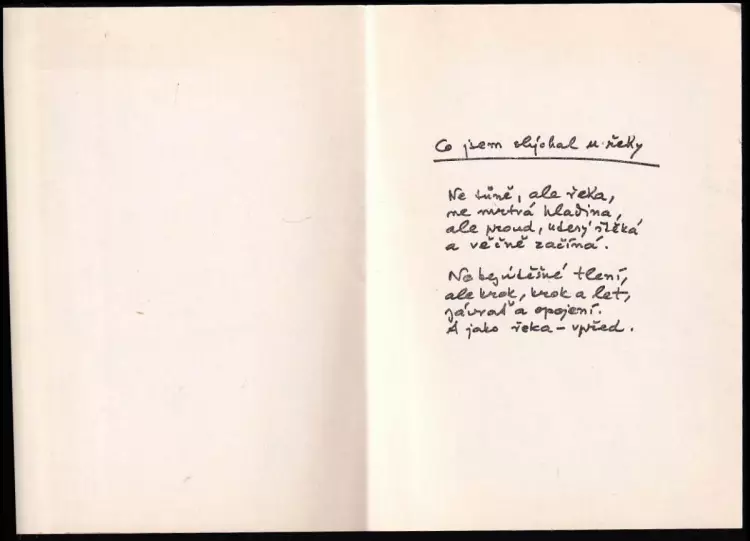 Co jsem slýchal u řeky
Ne tůně, ale řeka,
ne mrtvá hladina,
ale proud, který stéká
a věčně začíná.
Ne bezútěšné tlení,
ale krok, krok a let,
závrať a opojení.
A jako řeka – vpřed.